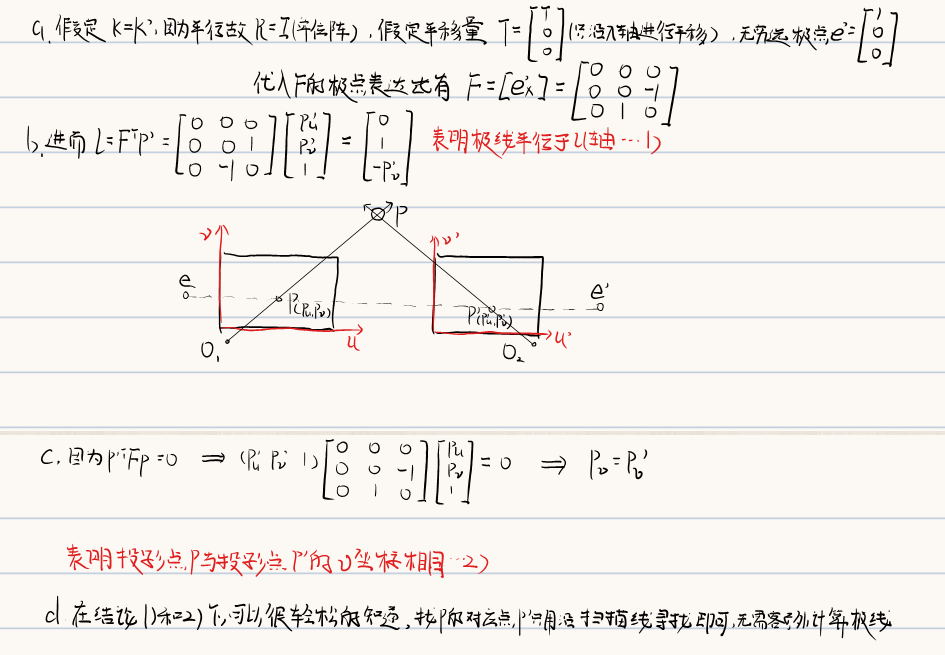 a. 假定 K=K', 因为平行故 R=I(单位阵), 假定平移量 T=[T 0 0] (只沿u轴进行平移), 无穷远极点e'=[1 0 0]
代入F的极点表达式有 F=[e'×]=[0 0 0; 0 0 -1; 0 1 0]
b. 进而 l=Fᵀp'=[0 0 0; 0 0 1; 0 -1 0][Pu' Pv' 1]=[0 1 -Pv'] 表明极线平行于u轴…1)
P
v v'
e e'
P(Pu,Pv) P'(Pu',Pv')
u u'
O₁ O₂
c. 因为p'ᵀFp=0 ⇒ (Pu' Pv' 1)[0 0 0; 0 0 -1; 0 1 0][Pu Pv 1]=0 ⇒ Pv=Pv'
表明投影点P与投影点P'的v坐标相同…2)
d. 在结论1)和2)下, 可以很轻松的知道, 找P的对应点P'只用沿扫描线寻找即可, 无需额外计算极线